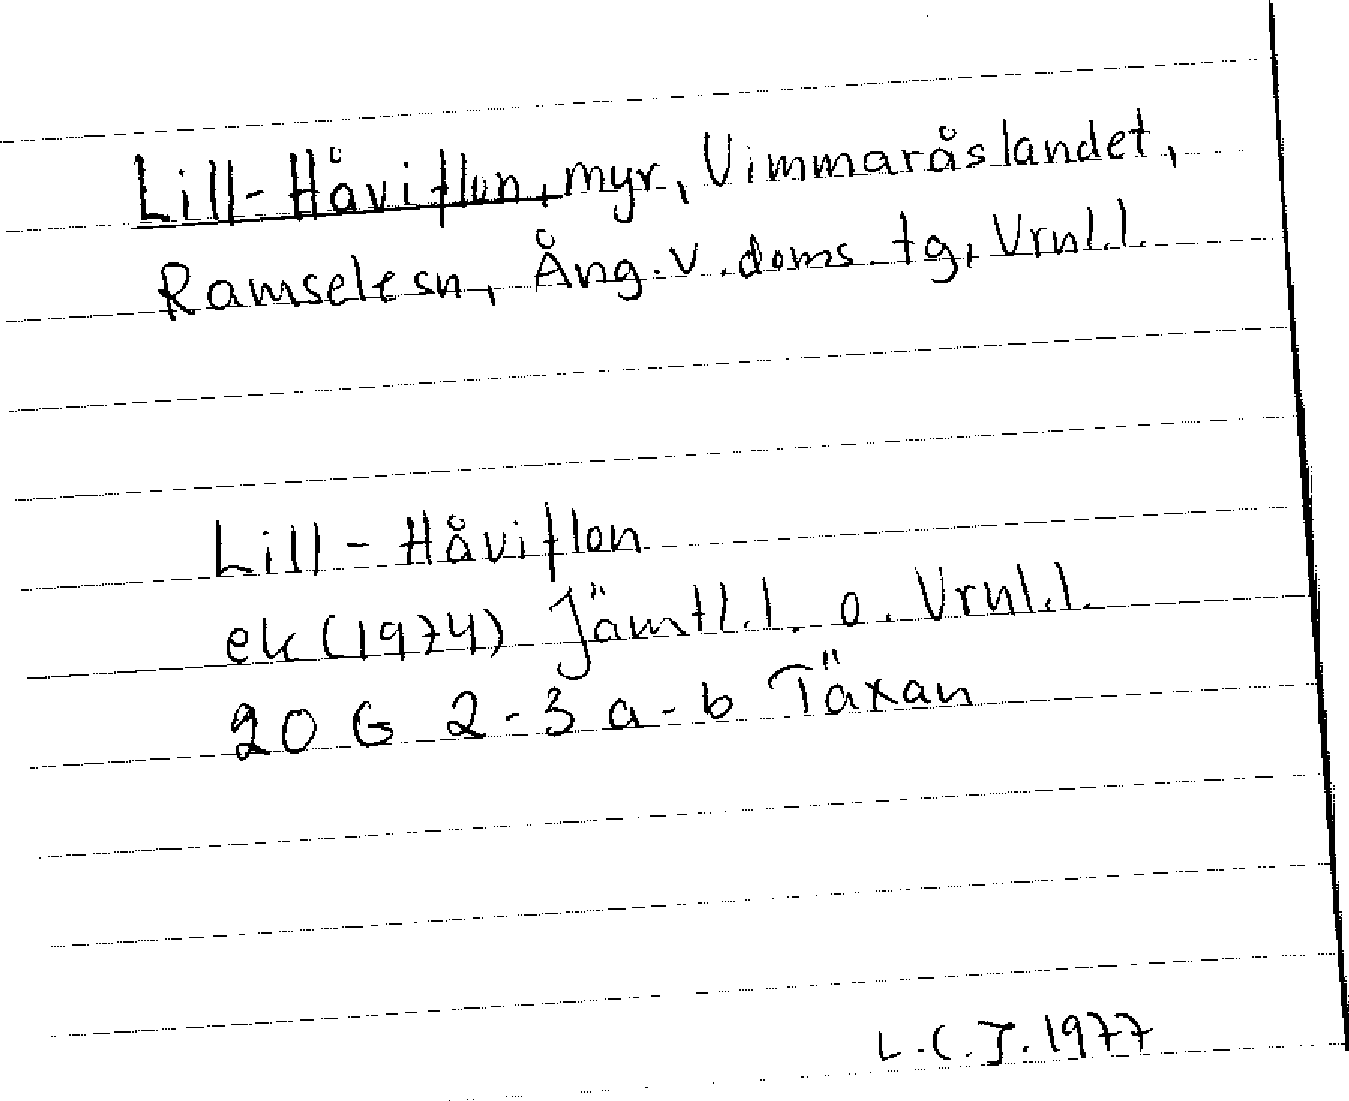 Lill-Håviflon, myr, Vimmaråslandet,
Ramselesn, Ång. v. doms. tg, Vrnl.l.
Lill-Håviflon
ek (1974) Jämtl.l. o. Vrnl.l.
20 G 2-3 a-b Täxan
L.C.J. 1977